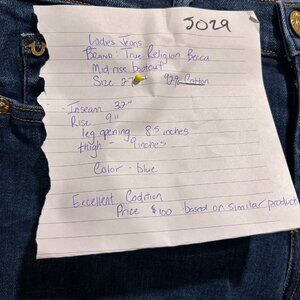 J029
Ladies Jeans
BRAND - True Religion Becca
Mid rise bootcut
Size 27 92% Cotton
- Inseam 32"
Rise 9"
leg opening 8.5 inches
thigh - 9 inches
Color - blue
Excellent Codition
Price $100 based on similar product